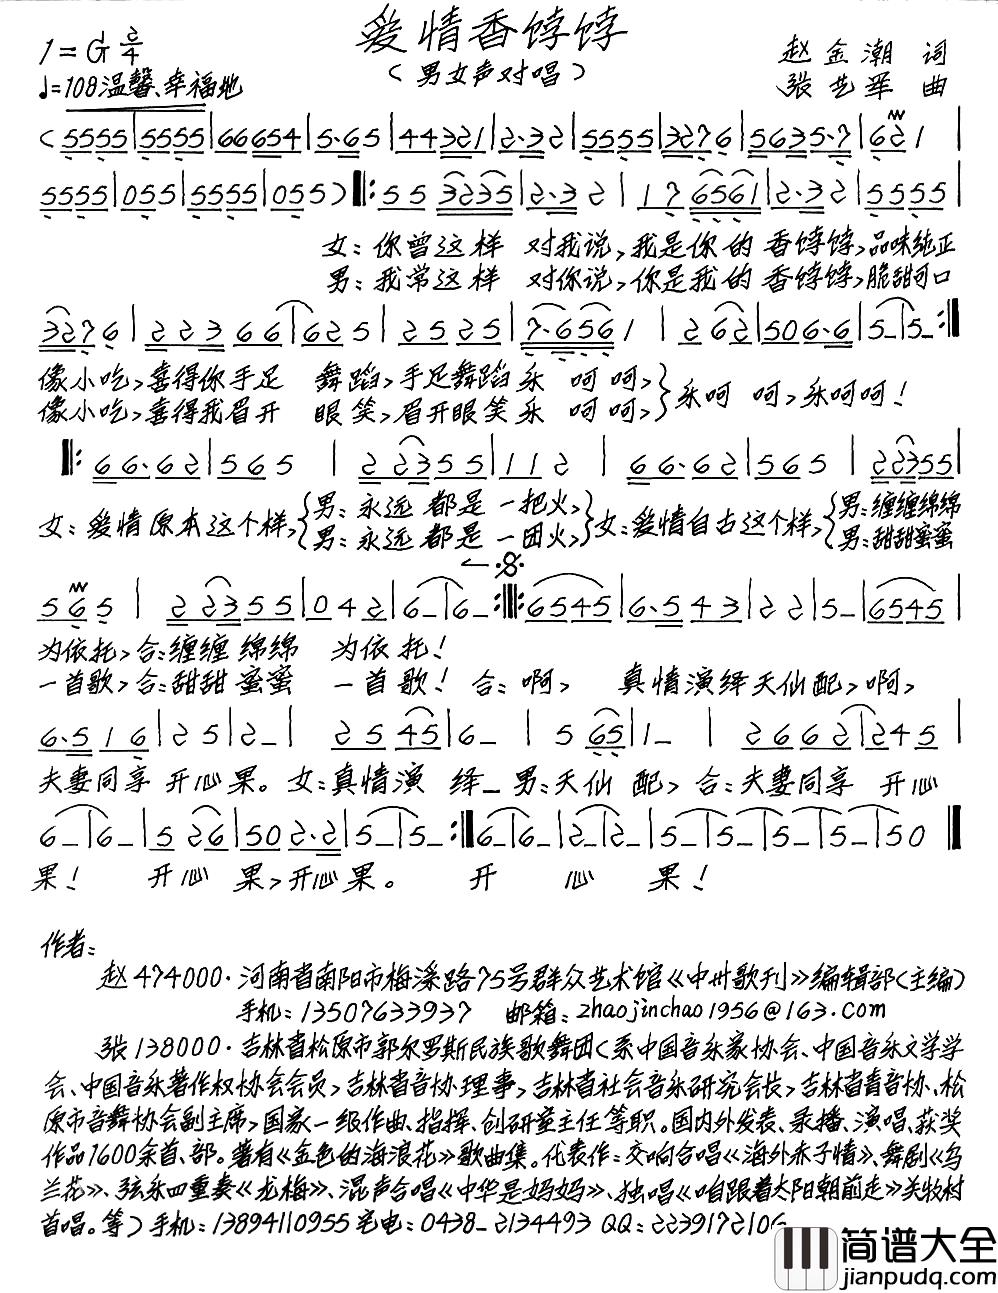 爱情香饽饽
1=G 2/4
（男女声对唱）
赵金潮 词
♩=108 温馨、幸福地
张艺军 曲
（5555|5555|66654|5·65|44321|2·32|5555|3276|5635·7|621|
5555|055|5555|055）‖:55 3235|2·32|17 6561|2·32|5555|
女：你曾这样 对我说，我是你的 香饽饽，品味纯正
男：我常这样 对你说，你是我的 香饽饽，脆甜可口
3276|223 66|625|25 25|7·656 1|2 62|50 6·6|5–|5–:‖
像小吃，喜得你手足 舞蹈，手足舞蹈乐 呵呵，}乐呵 呵，乐呵呵！
像小吃，喜得我眉开 眼笑，眉开眼笑乐 呵呵，
‖:66·62|565|2 2355|112|66·62|565|22355|
女：爱情原本这个样，{男：永远 都是 一把火，}女：爱情自古这个样，{男：缠缠绵绵
男：永远 都是 一团火， 男：甜甜蜜蜜
565|2 2355|042|6–|6–:‖:6545|6·543|22|5–|6545|
为依托，合：缠缠 绵绵 为依托！
一首歌，合：甜甜 蜜蜜 一首歌！ 合：啊， 真情演绎天仙配，啊，
6·516|25|2–|25 45|6–|5 65|1–|2662|245|
夫妻同享 开心果。女：真情演 绎– 男：天仙 配， 合：夫妻同享 开心
6–|6–|5 26|50 2·2|5–|5–:‖6–|6–|2–|2–|5–|5–|5–|5–|50‖
果！ 开心 果，开心果。 开 心 果！
作者：
赵 474000·河南省南阳市梅溪路75号群众艺术馆《中州歌刊》编辑部（主编）
手机：13507633937 邮箱：zhaojinchao1956@163.com
张 138000·吉林省松原市郭尔罗斯民族歌舞团（系中国音乐家协会、中国音乐文学学
会、中国音乐著作权协会会员，吉林省音协理事，吉林省社会音乐研究会长，吉林省青音协、松
原市音舞协会副主席，国家一级作曲、指挥、创研室主任等职。国内外发表、录播、演唱、获奖
作品1600余首、部。著有《金色的海浪花》歌曲集。代表作：交响合唱《海外赤子情》、舞剧《乌
兰花》、弦乐四重奏《龙梅》、混声合唱《中华是妈妈》、独唱《咱跟着太阳朝前走》关牧村
首唱。等）手机：13894110955 宅电：0438–2134493 QQ：2239172106
简谱大全
jianpudq.com